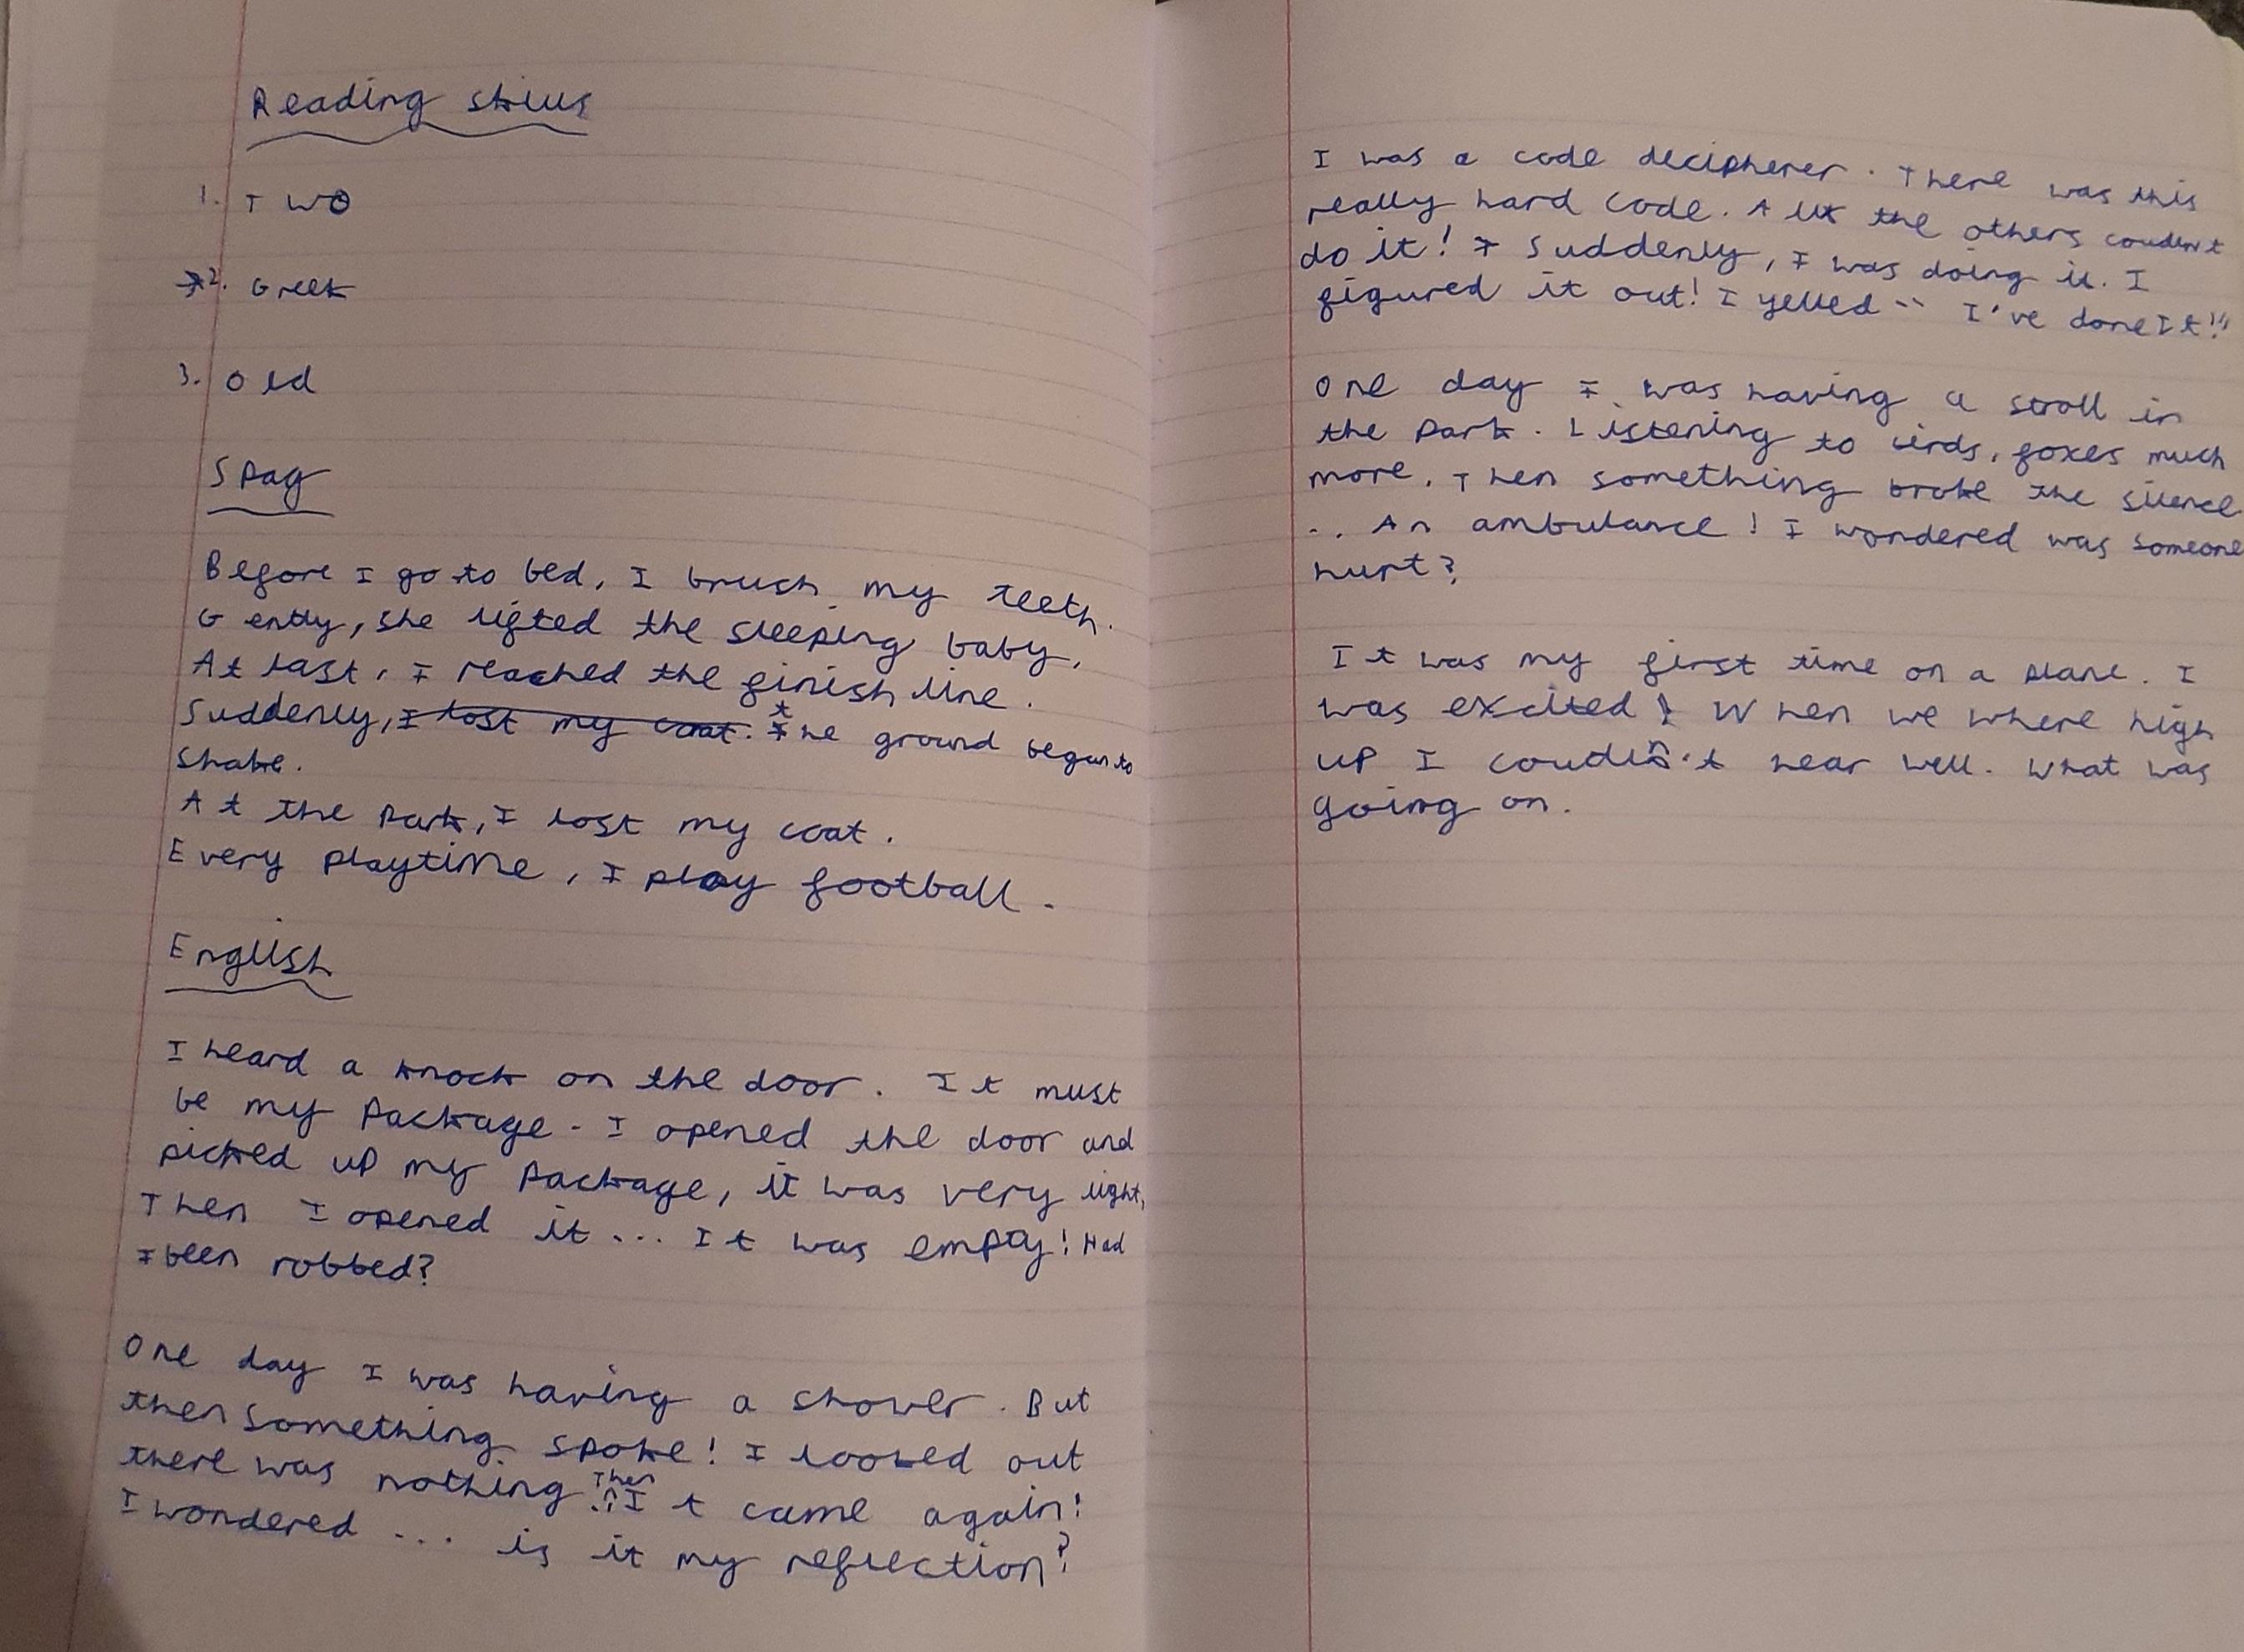 Reading skills
1. Two
2. Greek
3. Old
Spag
Before I go to bed, I brush my teeth.
Gently, she lifted the sleeping baby.
At last, I reached the finish line.
Suddenly, I lost my coat. the ground began to
shake.
At the park, I lost my coat.
Every playtime, I play football.
English
I heard a knock on the door. It must
be my package. I opened the door and
picked up my package, it was very light,
Then I opened it... It was empty! Had
I been robbed?
One day I was having a shower. But
then something spoke! I looked out
there was nothing. Then It came again!
I wondered ... is it my reflection?
I was a code decipherer. There was this
really hard code. All the others couldn't
do it! Suddenly, I was doing it. I
figured it out! I yelled "I've done It!"
One day I was having a stroll in
the park. Listening to birds, foxes much
more. Then something broke the silence
... An ambulance! I wondered was someone
hurt?
It was my first time on a plane. I
was excited! When we where high
up I coudn't hear well. What was
going on.